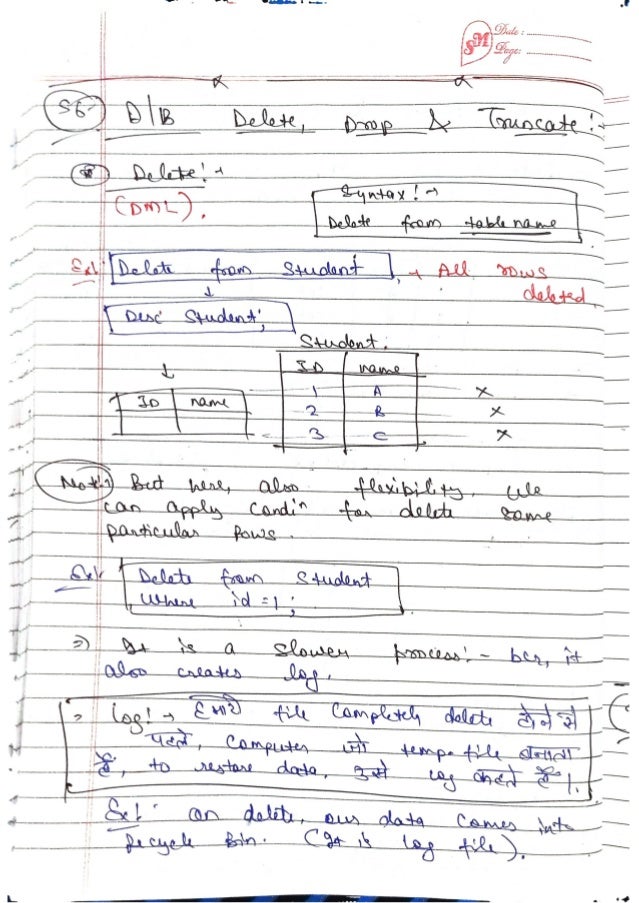 SM Date :
Page:
56 D/B Delete, Drop & Truncate :-
Delete! →
(DML).
Syntax! →
Delete from table name
Ex! Delete from Student → All rows deleted.
↓
Desc Student;
Student.
ID name
1 A ×
2 B ×
3 C ×
↓
ID name
Note:) But here, also flexibility, we
can apply Condiⁿ for delete some
particular rows.
Ex! Delete from Student
where id = 1;
⇒) It is a slower process! - bcz, it
also creates log.
log! → हमारे file Completely delete होने से
पहले, Computer जो temp. file बनाता
है, to restore data, उसे log कहते हैं।
Ex! on delete, our data comes into
Recycle Bin. (It is log file).